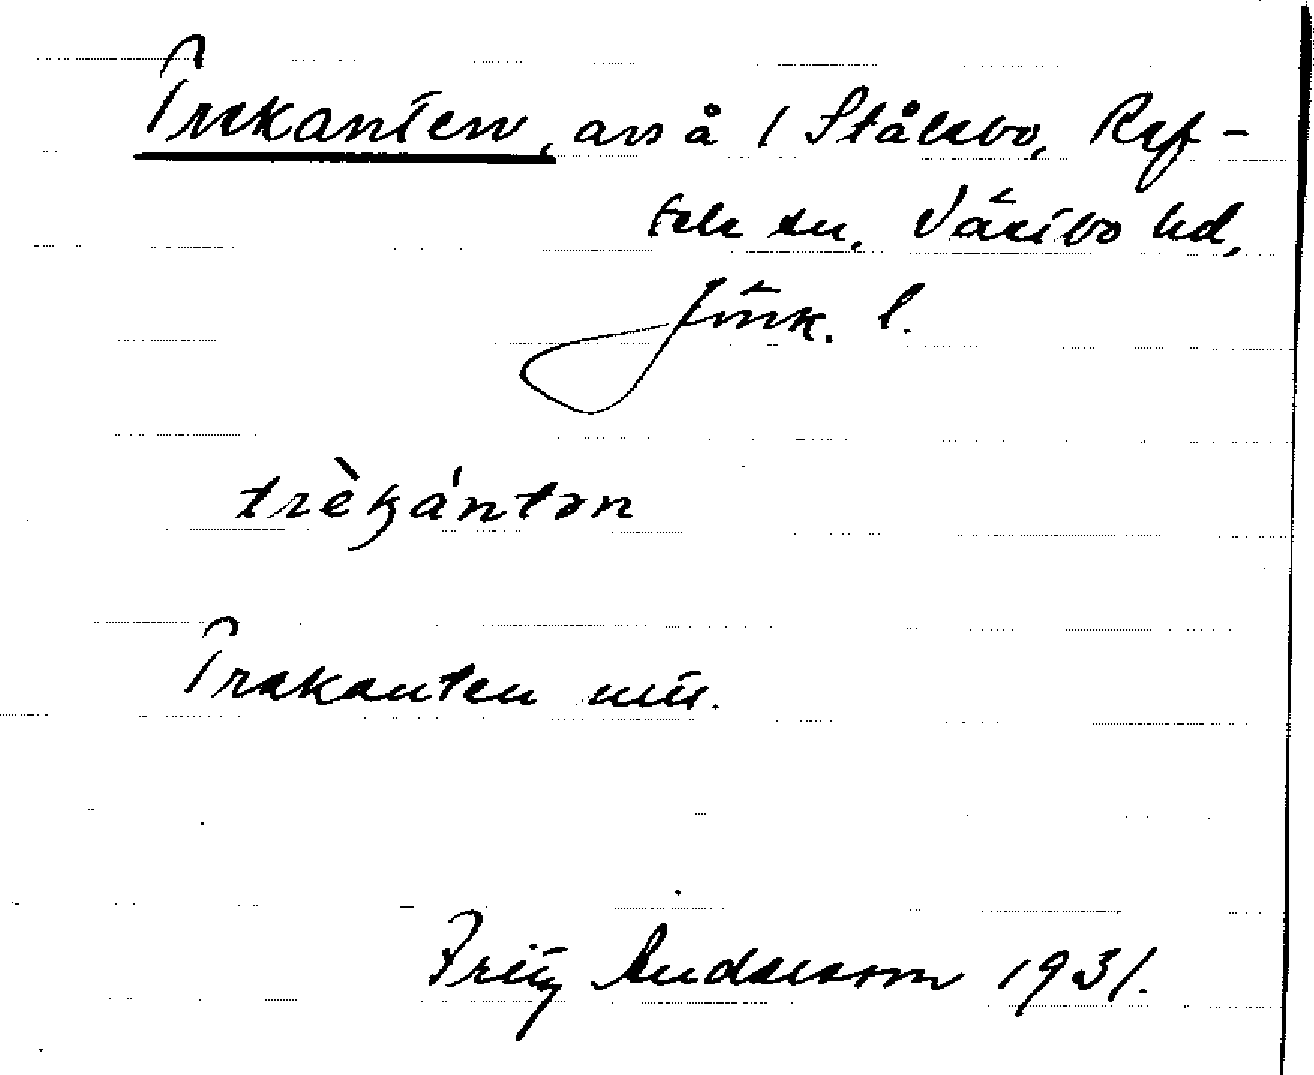 Trekanten, avs å 1 Stålebo, Ref-
tele sn, Västbo hd,
Jönk. l.
trèkántən
Trekanten
Fritz Andersson 1931.